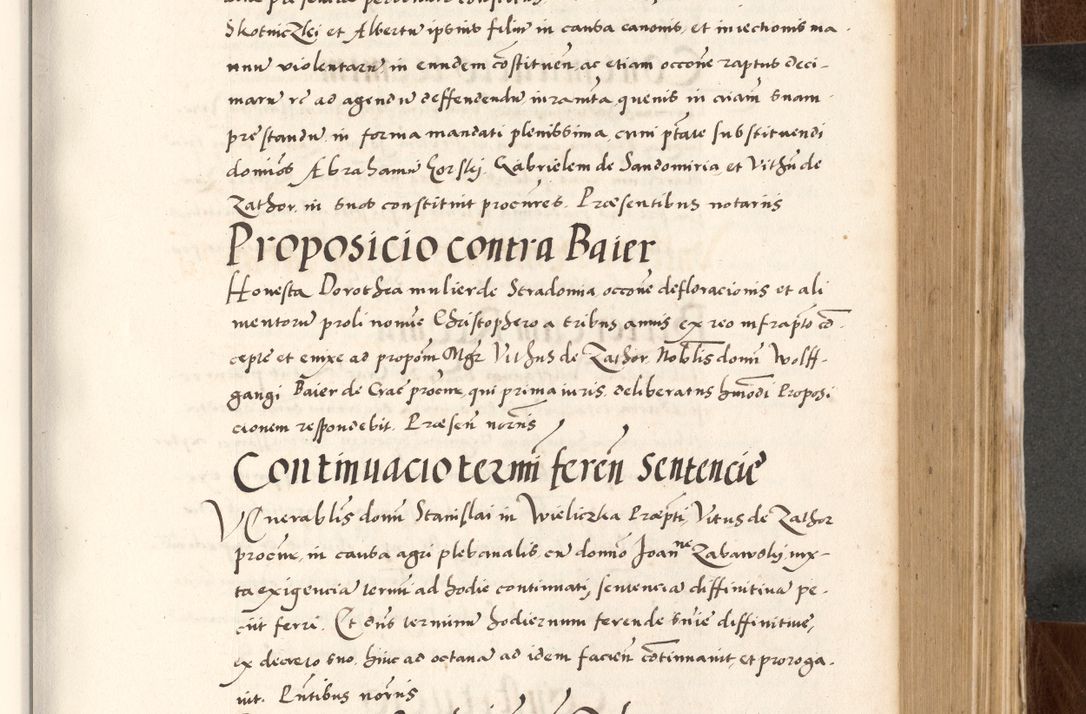 Skotniczkj et Albertu ipsius filiu in causa canonis, et iniectionis ma-
nuu violentaru in eundem cōstituen̄, ac etiam occōne raptus deci-
maru rē ad agendu deffendendu iurameta, quenis in eiam suam
prestandu in forma mandati plenissima, cum ptate substituendi
domīos Abrahamu Gorskj, Gabrielem de Sandomiria et Vithū de
Zathor. in suos constituit procures. Præsentibus notariis
Proposicio contra Baier
Honesta Dorothea mulier de Stradomia, occōne defloracionis et ali
mentoru proli nomie Christophero a tribus annis ex reo infrapto cō-
cepte et enixe ad propom Mgr Vithus de Zathor Nobīlis domī Wolff-
gangi Baier de Crac procur, qui prima iuris. deliberatus hmōdi Proposi
cionem respondebit. Præsen norīis
Continuacio termī feren Sentencie
VEnerabīlis domī Stanislai in Wieliczka Præpti Vitus de Zathor
procur, in causa agri plebanalis, cu domno Joanne Zabawskj, iux-
ta exigencia termī ad hodie continuati, sentencia diffinitiua pe-
ciit ferri. Et dnūs terminu hodiernum ferende snīe diffinitiue,
ex decreto suo, hinc ad octaua ad idem facien cōtinuauit et proroga-
uit. Pntibus norīis